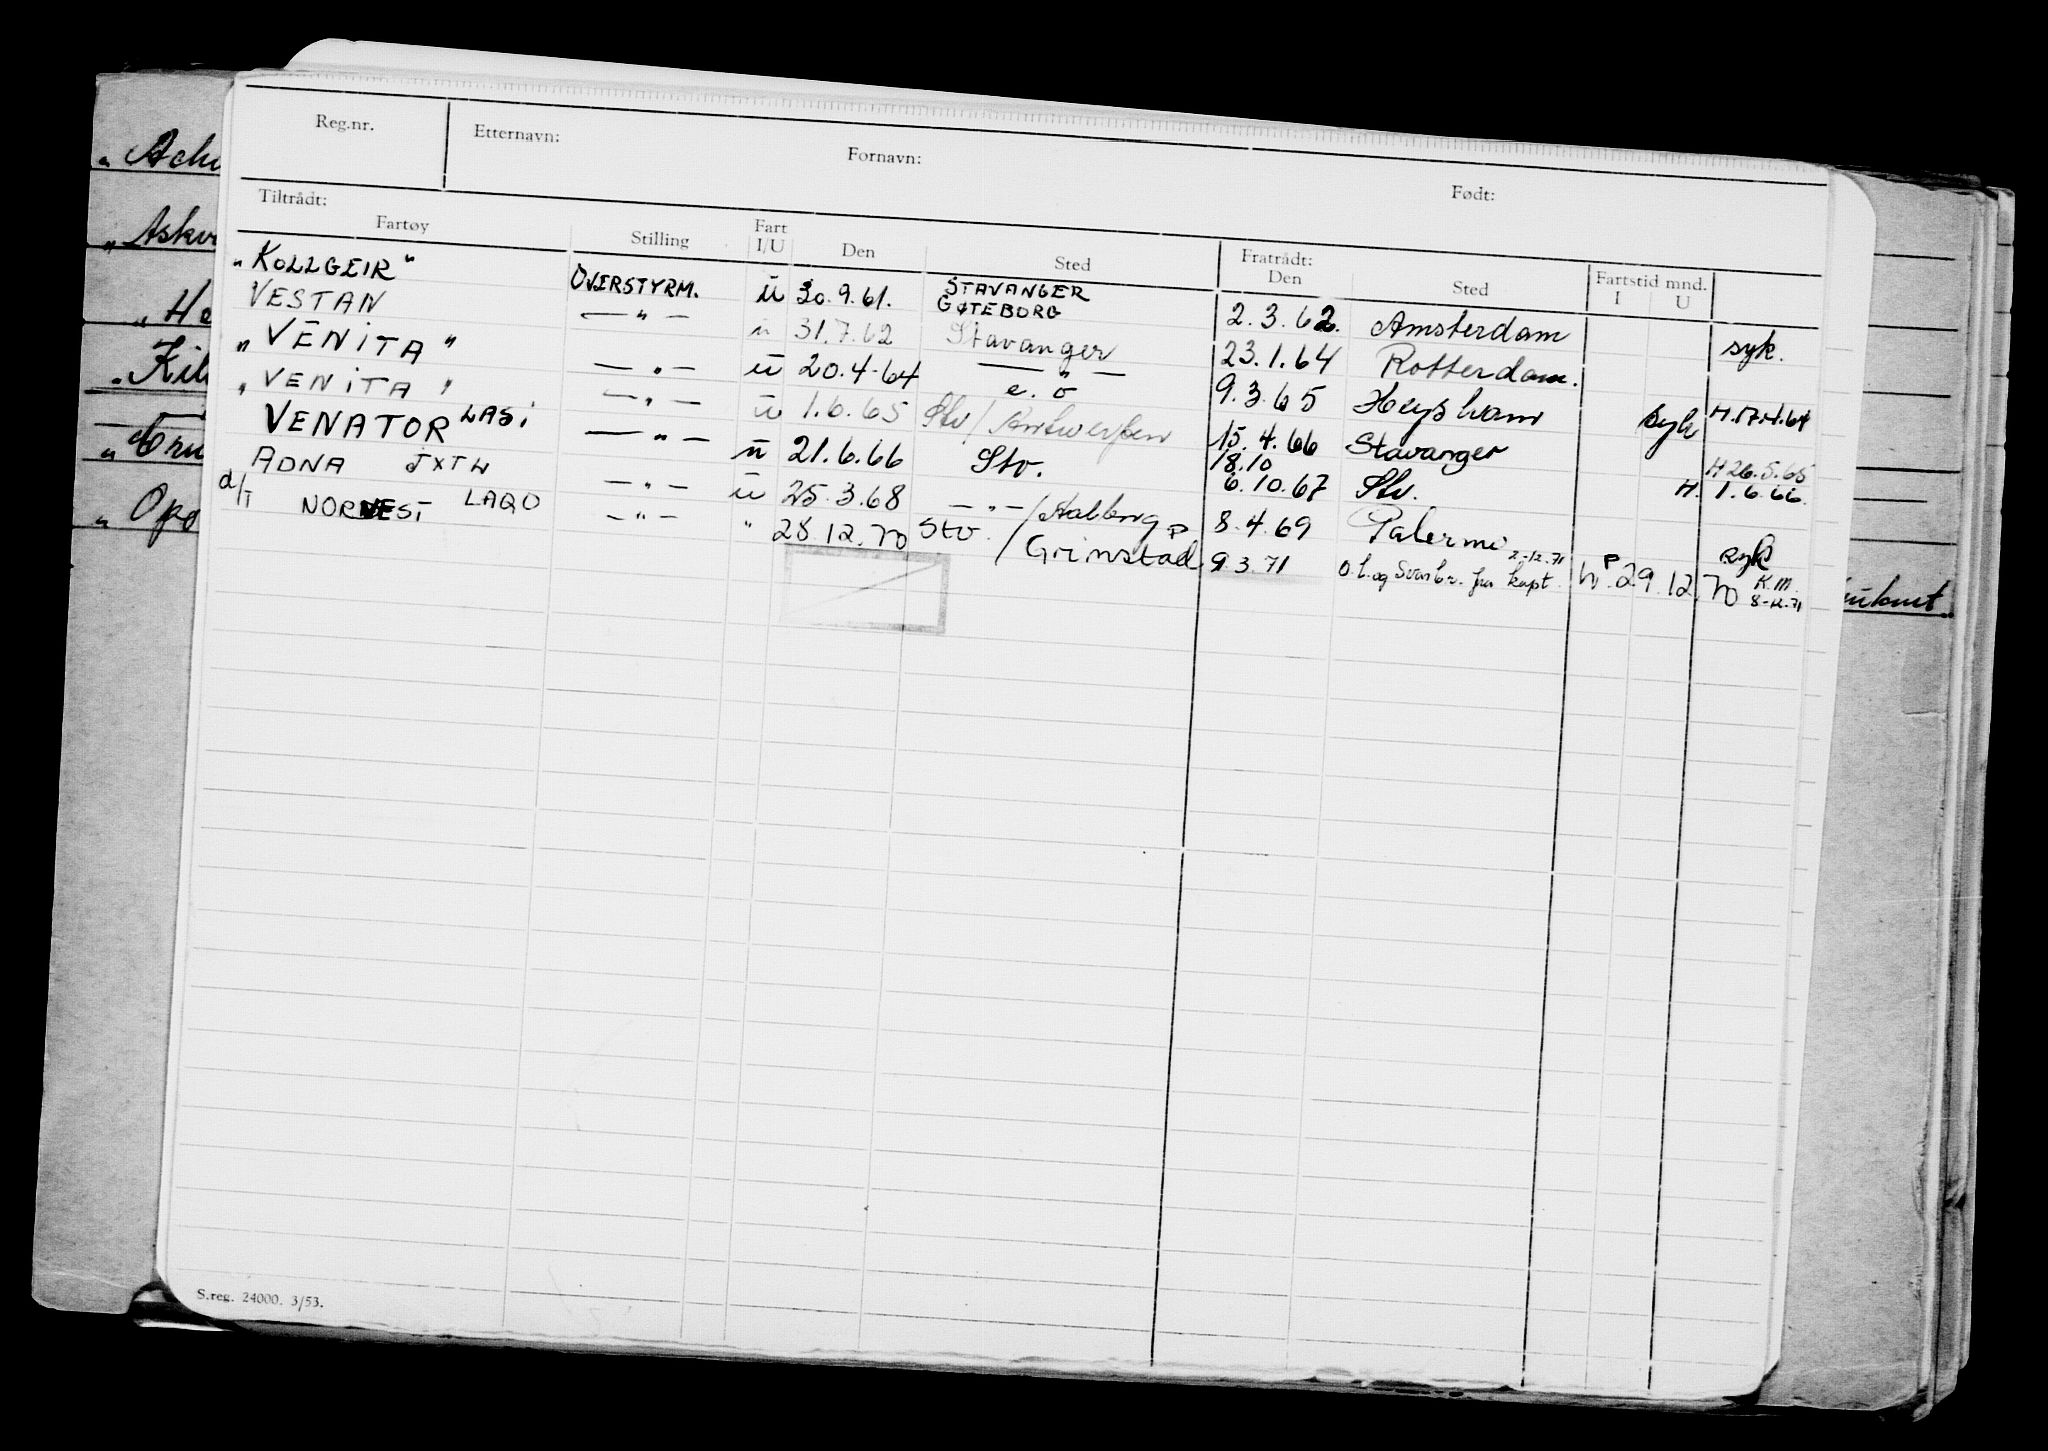 Reg.nr. Etternavn: Fornavn: Født:
Tiltrådt: Fratrådt:
Fartøy Stilling Fart I/U Den Sted Den Sted Fartstid mnd. I U
„KOLLGEIR" OVERSTYRM. u 30.9.61. STAVANGER 2.3.62. Amsterdam syk.
VESTAN — " — u 31.7.62 GØTEBORG Stavanger 23.1.64 Rotterdam.
„VENITA" — " — u 20.4.64 — " — e.o 9.3.65 Heysham syk H.17.4.64
„VENITA" — " — u 1.6.65 Stv/Antwerpen 15.4.66 Stavanger H 26.5.65
VENATOR LASI — " — u 21.6.66 Stv. 18.10 6.10.67 Stv. H. 1.6.66.
ADNA JXTW — " — u 25.3.68 — " —/Aalborg 8.4.69 Palermo syk
d/T NORVEST LAQO — " — " 28.12.70 Stv. /Grimstad 9.3.71 2.-12.71 o.l.og Svarbr. fra kapt. 29.12.70 K.M. 8-12.71
„Ach
„Askv
„He
„Kil
„Oru
„Opo
S.reg. 24000. 3/53.